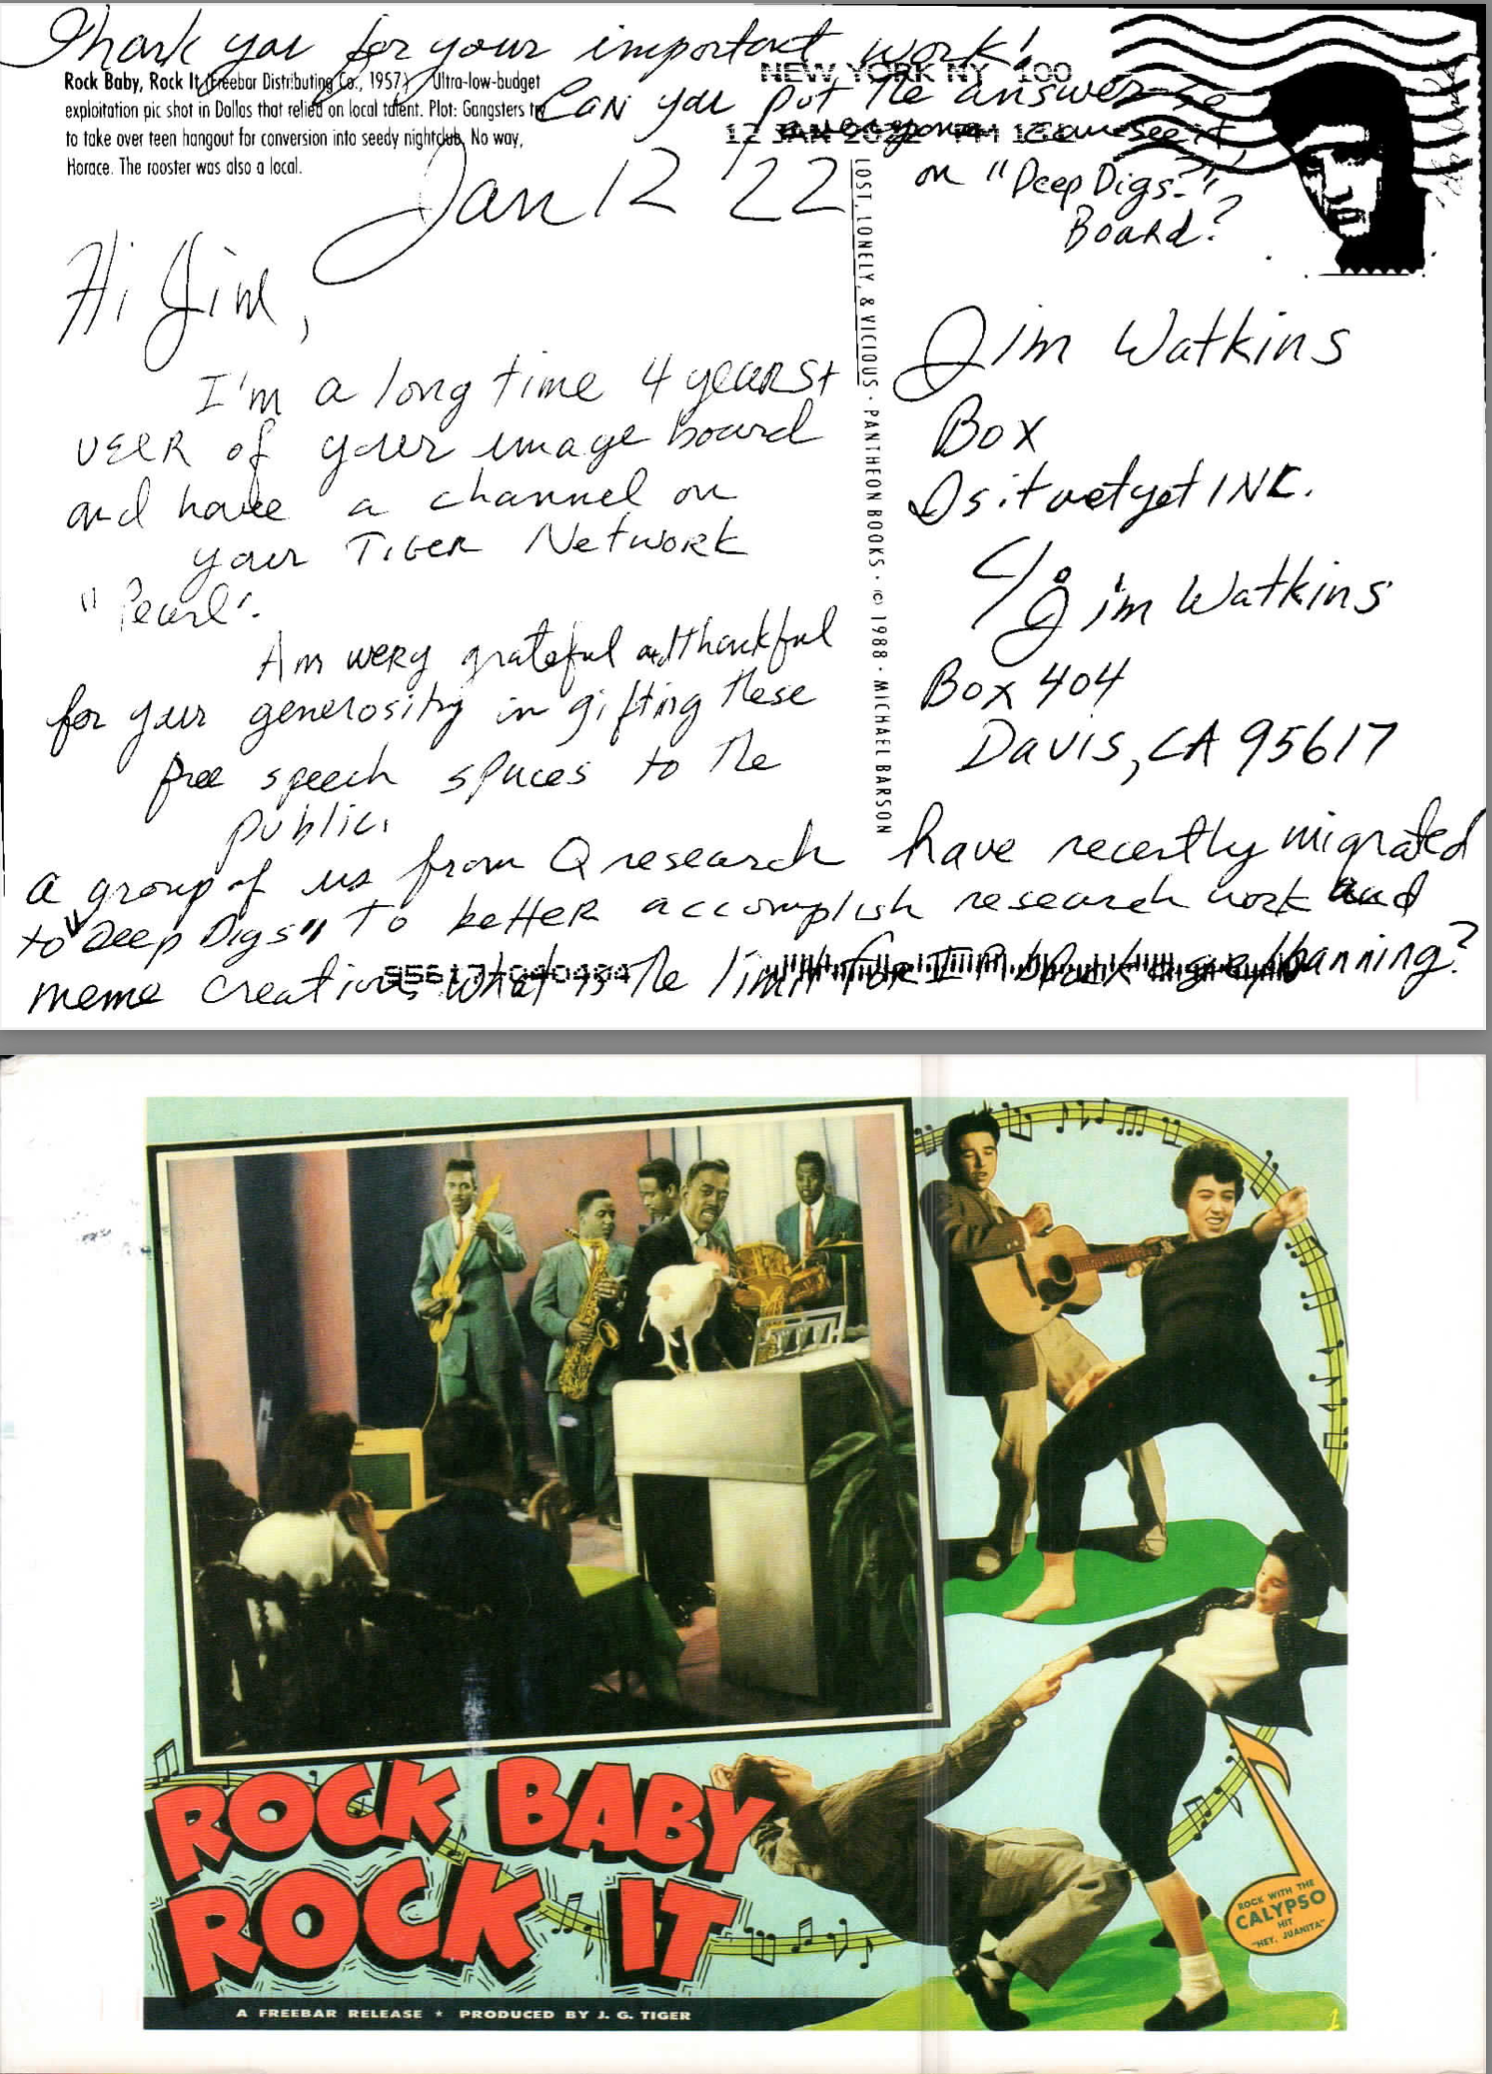 Thank you for your important work!
NEW YORK NY 100
Rock Baby, Rock It (Freebar Distributing Co., 1957) Ultra-low-budget
exploitation pic shot in Dallas that relied on local talent. Plot: Gangsters try
to take over teen hangout for conversion into seedy nightclub. No way,
Horace. The rooster was also a local.
Can you put the answer so
12 JAN 2022 PM
can see it
on "Deep Digs"
Board?
Jan 12 '22
Hi Jim,
I'm a long time 4 years+
user of your image board
and have a channel on
your Tiger Network
"Pearl".
Am very grateful and thankful
for your generosity in gifting these
free speech spaces to the
public.
a group of us from Q research have recently migrated
to "Deep Digs" to better accomplish research work and
meme creation. What is the limit for I.P. banning?
95617-040404
LOST, LONELY, & VICIOUS · PANTHEON BOOKS · © 1988 · MICHAEL BARSON
Jim Watkins
Box
Isitwetyet INC.
c/o Jim Watkins
Box 404
Davis, CA 95617
ROCK BABY
ROCK IT
ROCK WITH THE
CALYPSO
HIT
"HEY, JUANITA"
A FREEBAR RELEASE * PRODUCED BY J. G. TIGER
1